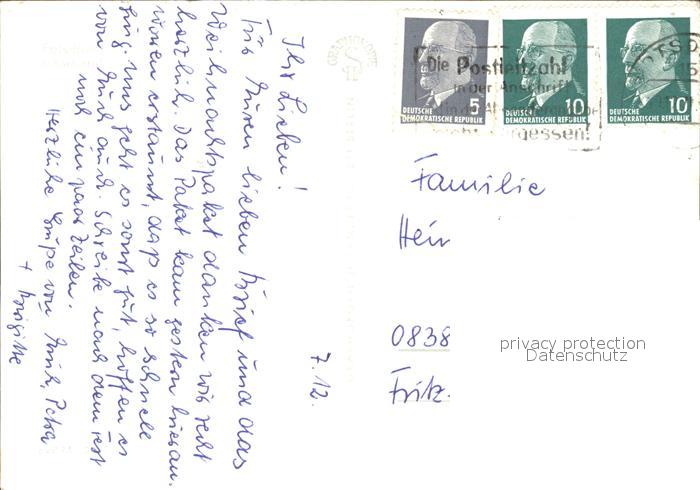 7. 12.
Ihr Lieben!
Für Euren lieben Brief und das
Weihnachtspaket danken wir recht
herzlich. Das Paket kam gestern hier an.
waren erstaunt, daß es so schnell
ging. Uns geht es sonst gut, hoffen es
von Euch auch. Schreibe nach dem Fest
noch ein paar Zeilen.
Herzliche Grüße von Erich, Petra
+ Brigitte
Die Postleitzahl
in der Anschrift
DEUTSCHE
DEMOKRATISCHE REPUBLIK
5
DEUTSCHE
DEMOKRATISCHE REPUBLIK
10
DEUTSCHE
DEMOKRATISCHE REPUBLIK
10
Familie
Hein
0838
Fritz.
privacy protection
Datenschutz